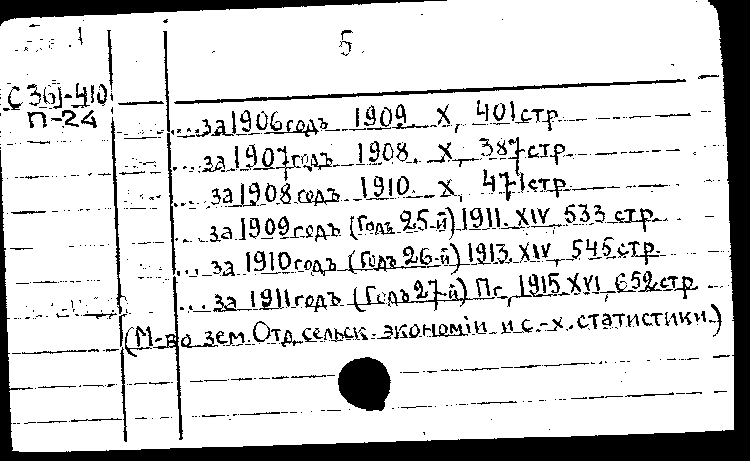 5
С361-410
П-24
...за 1906 годъ 1909. X, 401 стр.
...за 1907 годъ 1908. X, 387 стр.
...за 1908 годъ 1910. X, 471 стр.
...за 1909 годъ (Годъ 25-й) 1911. XIV, 533 стр.
...за 1910 годъ (Годъ 26-й) 1913. XIV, 545 стр.
...за 1911 годъ (Годъ 27-й) Пг., 1915. XVI, 652 стр.
(М-во зем. Отд. сельск. экономіи и с.-х. статистики.)